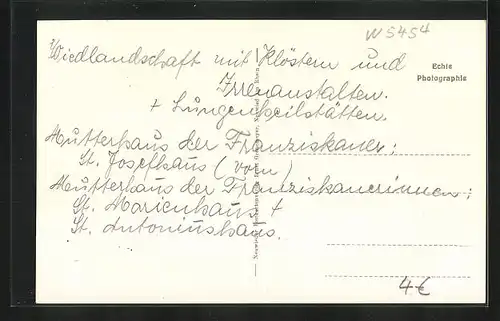 W5454
Wiedlandschaft mit Klöstern und
Irrenanstalten.
+ Lungenheilstätten.
Echte
Photographie
Mutterhaus der Franziskaner:
St. Josefhaus (vorn)
Mutterhaus der Franziskanerinnen:
St. Marienhaus +
St. Antoniushaus.
4€